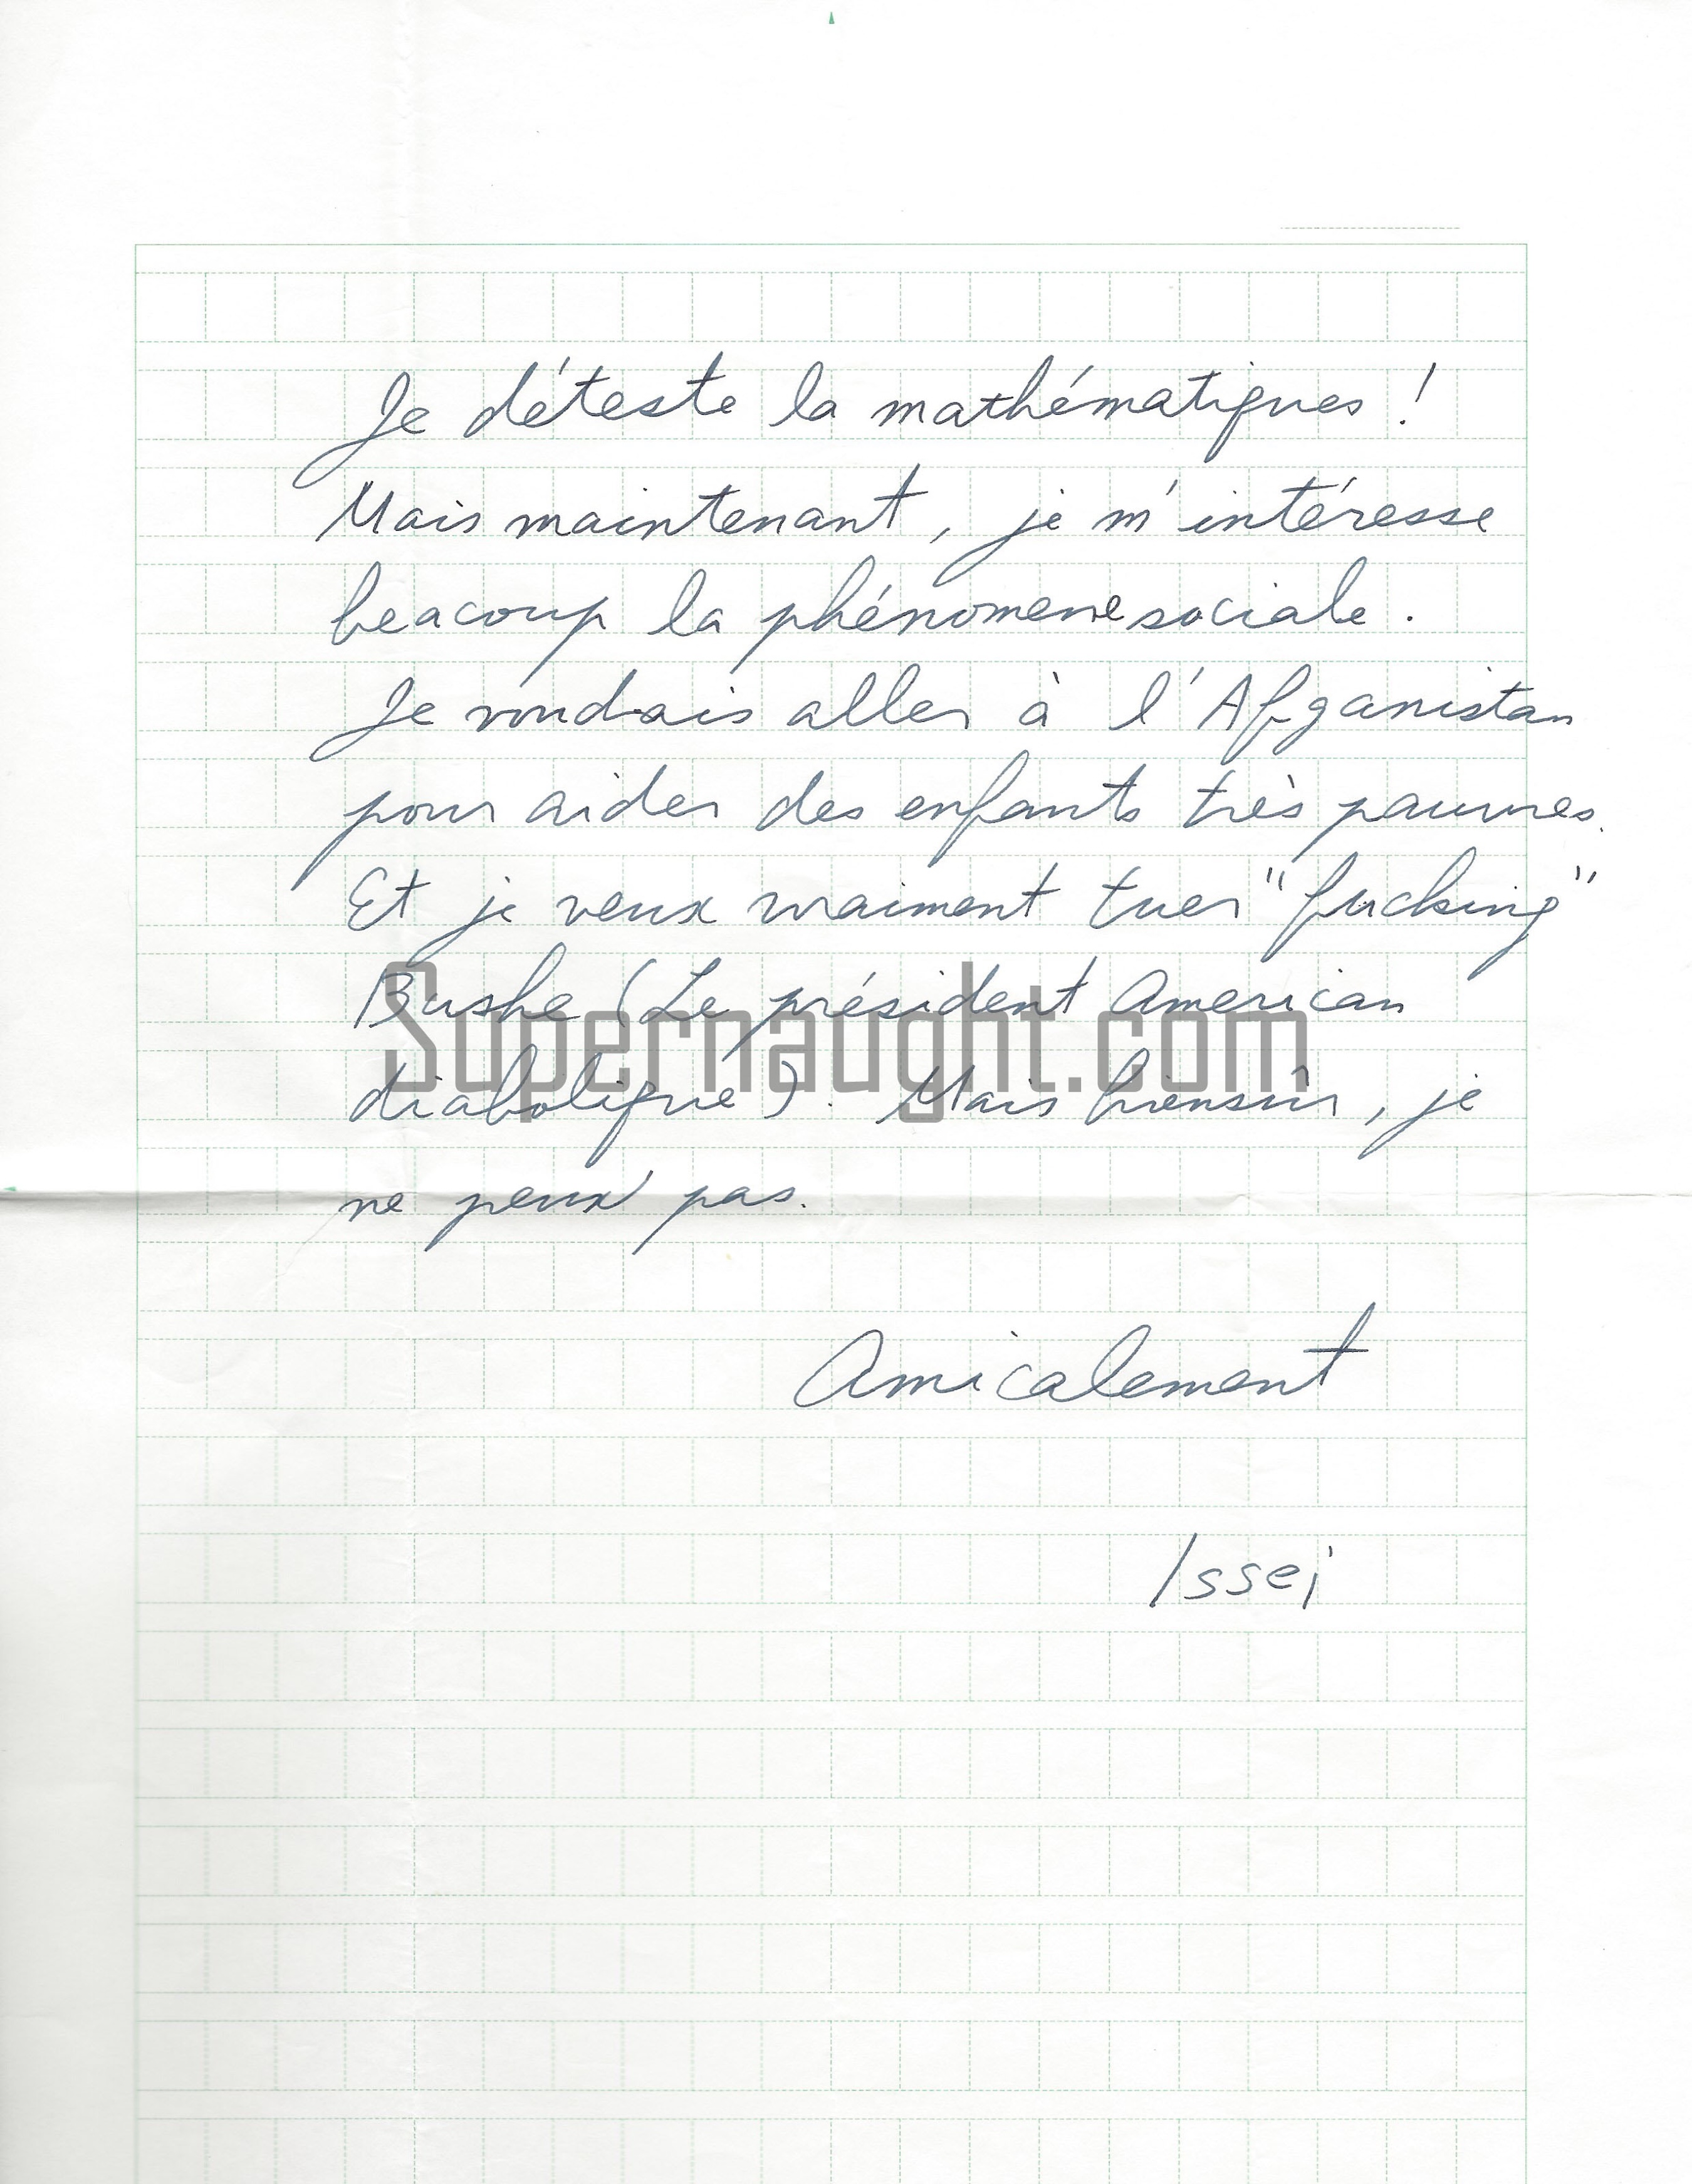 Je déteste la mathématiques !
Mais maintenant, je m'intéresse
beacoup la phénomene sociale.
Je voudrais aller à l'Afganistan
pour aider des enfants très pauvres.
Et je veux vraiment tuer "fucking"
Bushe (Le président American
diabolique). Mais biensûr, je
ne peux pas.
Amicalement
Issei
Supernaught.com